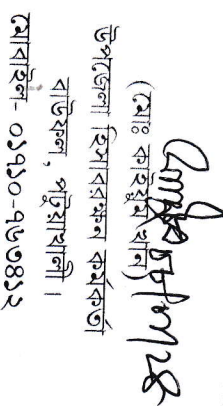 (মোঃ কাইয়ুম খান)
উপজেলা হিসাবরক্ষণ কর্মকর্তা
বাউফল, পটুয়াখালী।
মোবাইল- ০১৭১০-৭৬৩৪১২